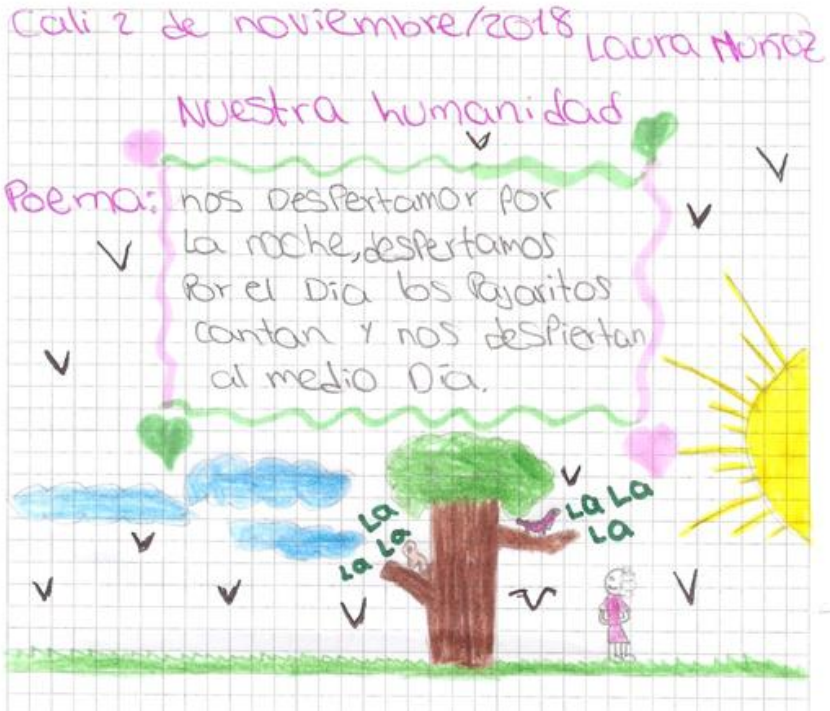 Cali 2 de noviembre/2018
Laura Muñoz
Nuestra humanidad
Poema: nos Despertamor por
La noche, despertamos
Por el Dia los Pajaritos
cantan y nos despiertan
al medio Dia.
La
La La
La La
La